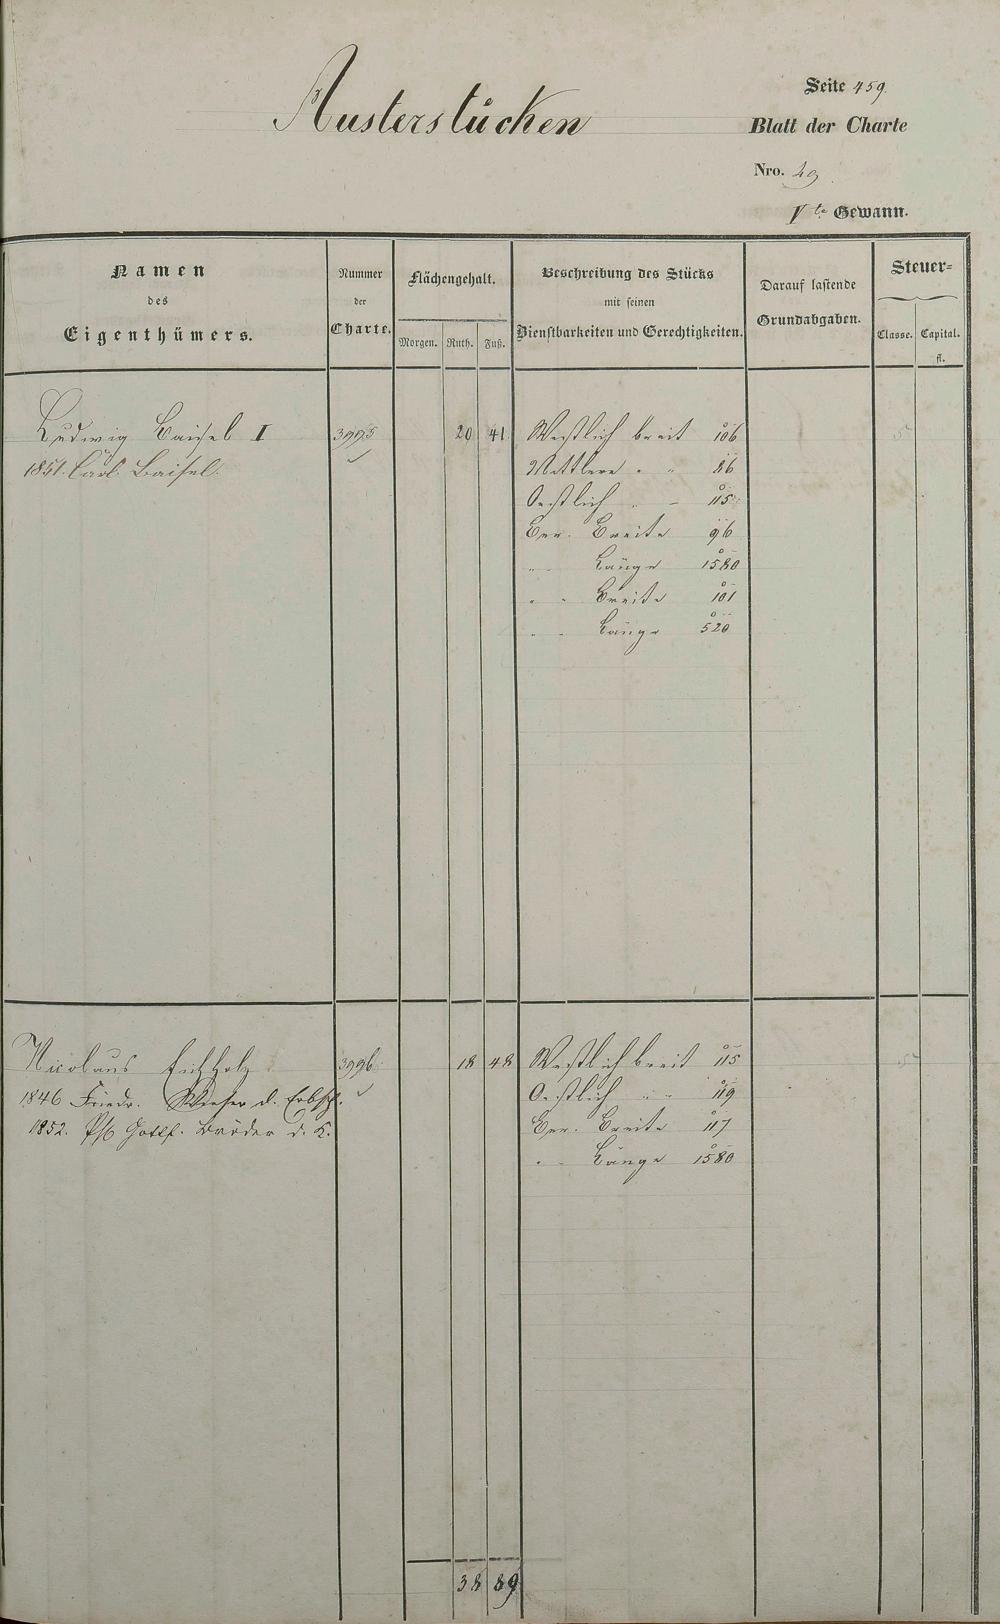 Seite 459.
Austerstücken
Blatt der Charte
Nro. 29
Vte Gewann.
Namen
des
Eigenthümers.
Nummer
der
Charte.
Flächengehalt.
Morgen. Ruth. Fuß.
Beschreibung des Stücks
mit seinen
Dienstbarkeiten und Gerechtigkeiten.
Darauf lastende
Grundabgaben.
Steuer-
Classe. Capital.
fl.
Ludwig Baisel I 3995 20 41 Westlich breit 106
1851. Carl Baisel. Mittlere " " 86
Oestlich " " 115
Ber. Breite 96
" Länge 1580
" " Breite 101
" " Länge 520
Nicolaus Eichholz 3996 18 48 Westlich breit 115
1846 Friedr. d. Erbsch. Oestlich " " 119
1852. Gottf. Bröder d. K. Ber. Breite 117
" " Länge 1580
38 89